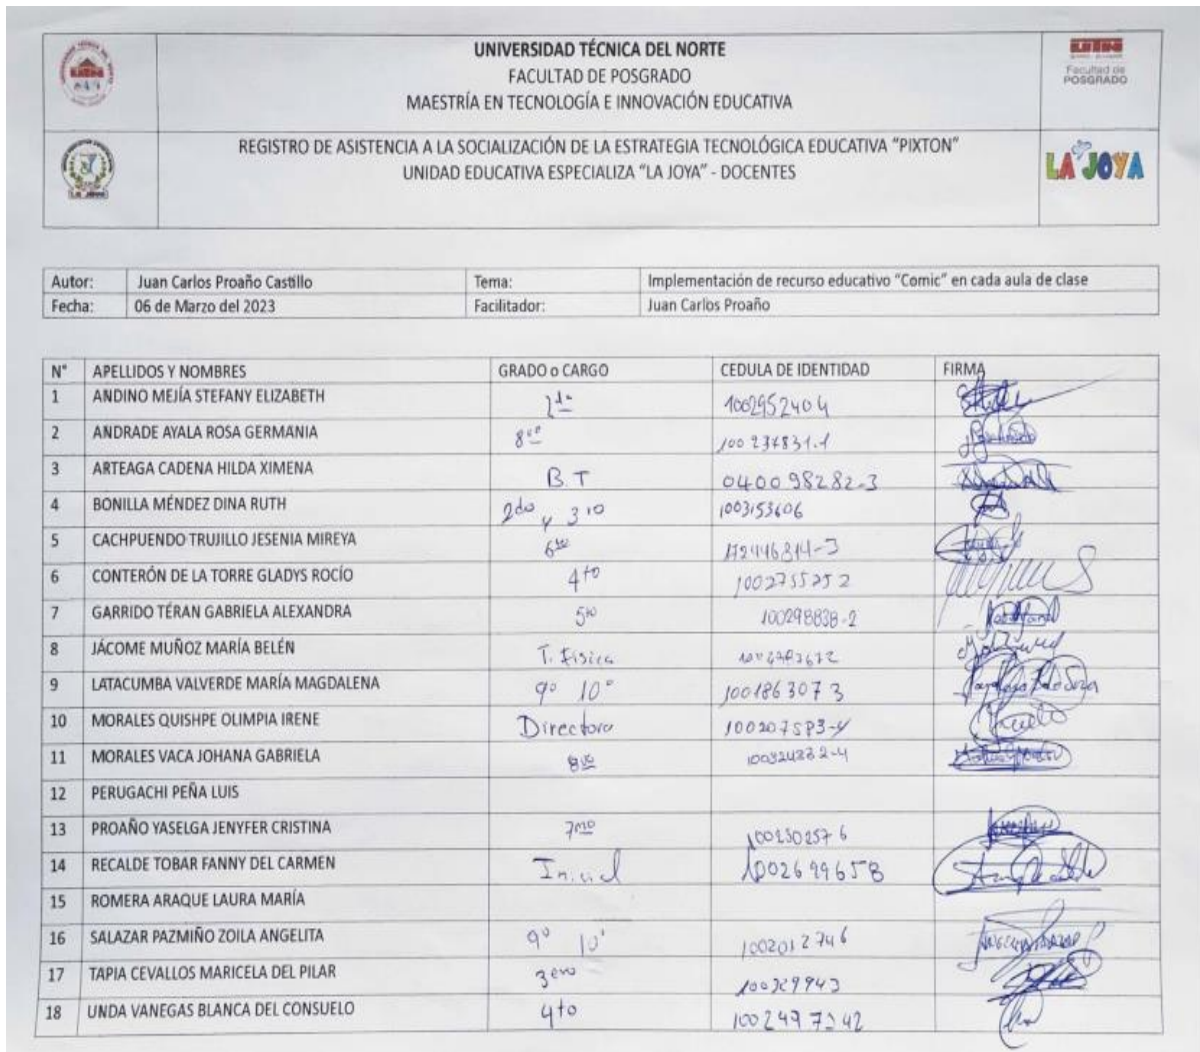 UNIVERSIDAD TÉCNICA DEL NORTE
FACULTAD DE POSGRADO
MAESTRÍA EN TECNOLOGÍA E INNOVACIÓN EDUCATIVA
UTN
Facultad de
POSGRADO
REGISTRO DE ASISTENCIA A LA SOCIALIZACIÓN DE LA ESTRATEGIA TECNOLÓGICA EDUCATIVA “PIXTON”
UNIDAD EDUCATIVA ESPECIALIZA “LA JOYA” - DOCENTES
LA JOYA
Autor: Juan Carlos Proaño Castillo Tema: Implementación de recurso educativo “Comic” en cada aula de clase
Fecha: 06 de Marzo del 2023 Facilitador: Juan Carlos Proaño
N° APELLIDOS Y NOMBRES GRADO o CARGO CEDULA DE IDENTIDAD FIRMA
1 ANDINO MEJÍA STEFANY ELIZABETH 1002952404
2 ANDRADE AYALA ROSA GERMANIA 8vo
3 ARTEAGA CADENA HILDA XIMENA B.T 040098282-3
4 BONILLA MÉNDEZ DINA RUTH 2do y 3ro 1003153606
5 CACHPUENDO TRUJILLO JESENIA MIREYA 6to
6 CONTERÓN DE LA TORRE GLADYS ROCÍO 4to 1002755252
7 GARRIDO TÉRAN GABRIELA ALEXANDRA 5to 100298838-2
8 JÁCOME MUÑOZ MARÍA BELÉN T. Física
9 LATACUMBA VALVERDE MARÍA MAGDALENA 9° 10° 1001863073
10 MORALES QUISHPE OLIMPIA IRENE Directora
11 MORALES VACA JOHANA GABRIELA 8vo
12 PERUGACHI PEÑA LUIS
13 PROAÑO YASELGA JENYFER CRISTINA 7mo 1002502576
14 RECALDE TOBAR FANNY DEL CARMEN Inicial 1002699658
15 ROMERA ARAQUE LAURA MARÍA
16 SALAZAR PAZMIÑO ZOILA ANGELITA 9° 10° 1002012746
17 TAPIA CEVALLOS MARICELA DEL PILAR 3ero
18 UNDA VANEGAS BLANCA DEL CONSUELO 4to 1002497242